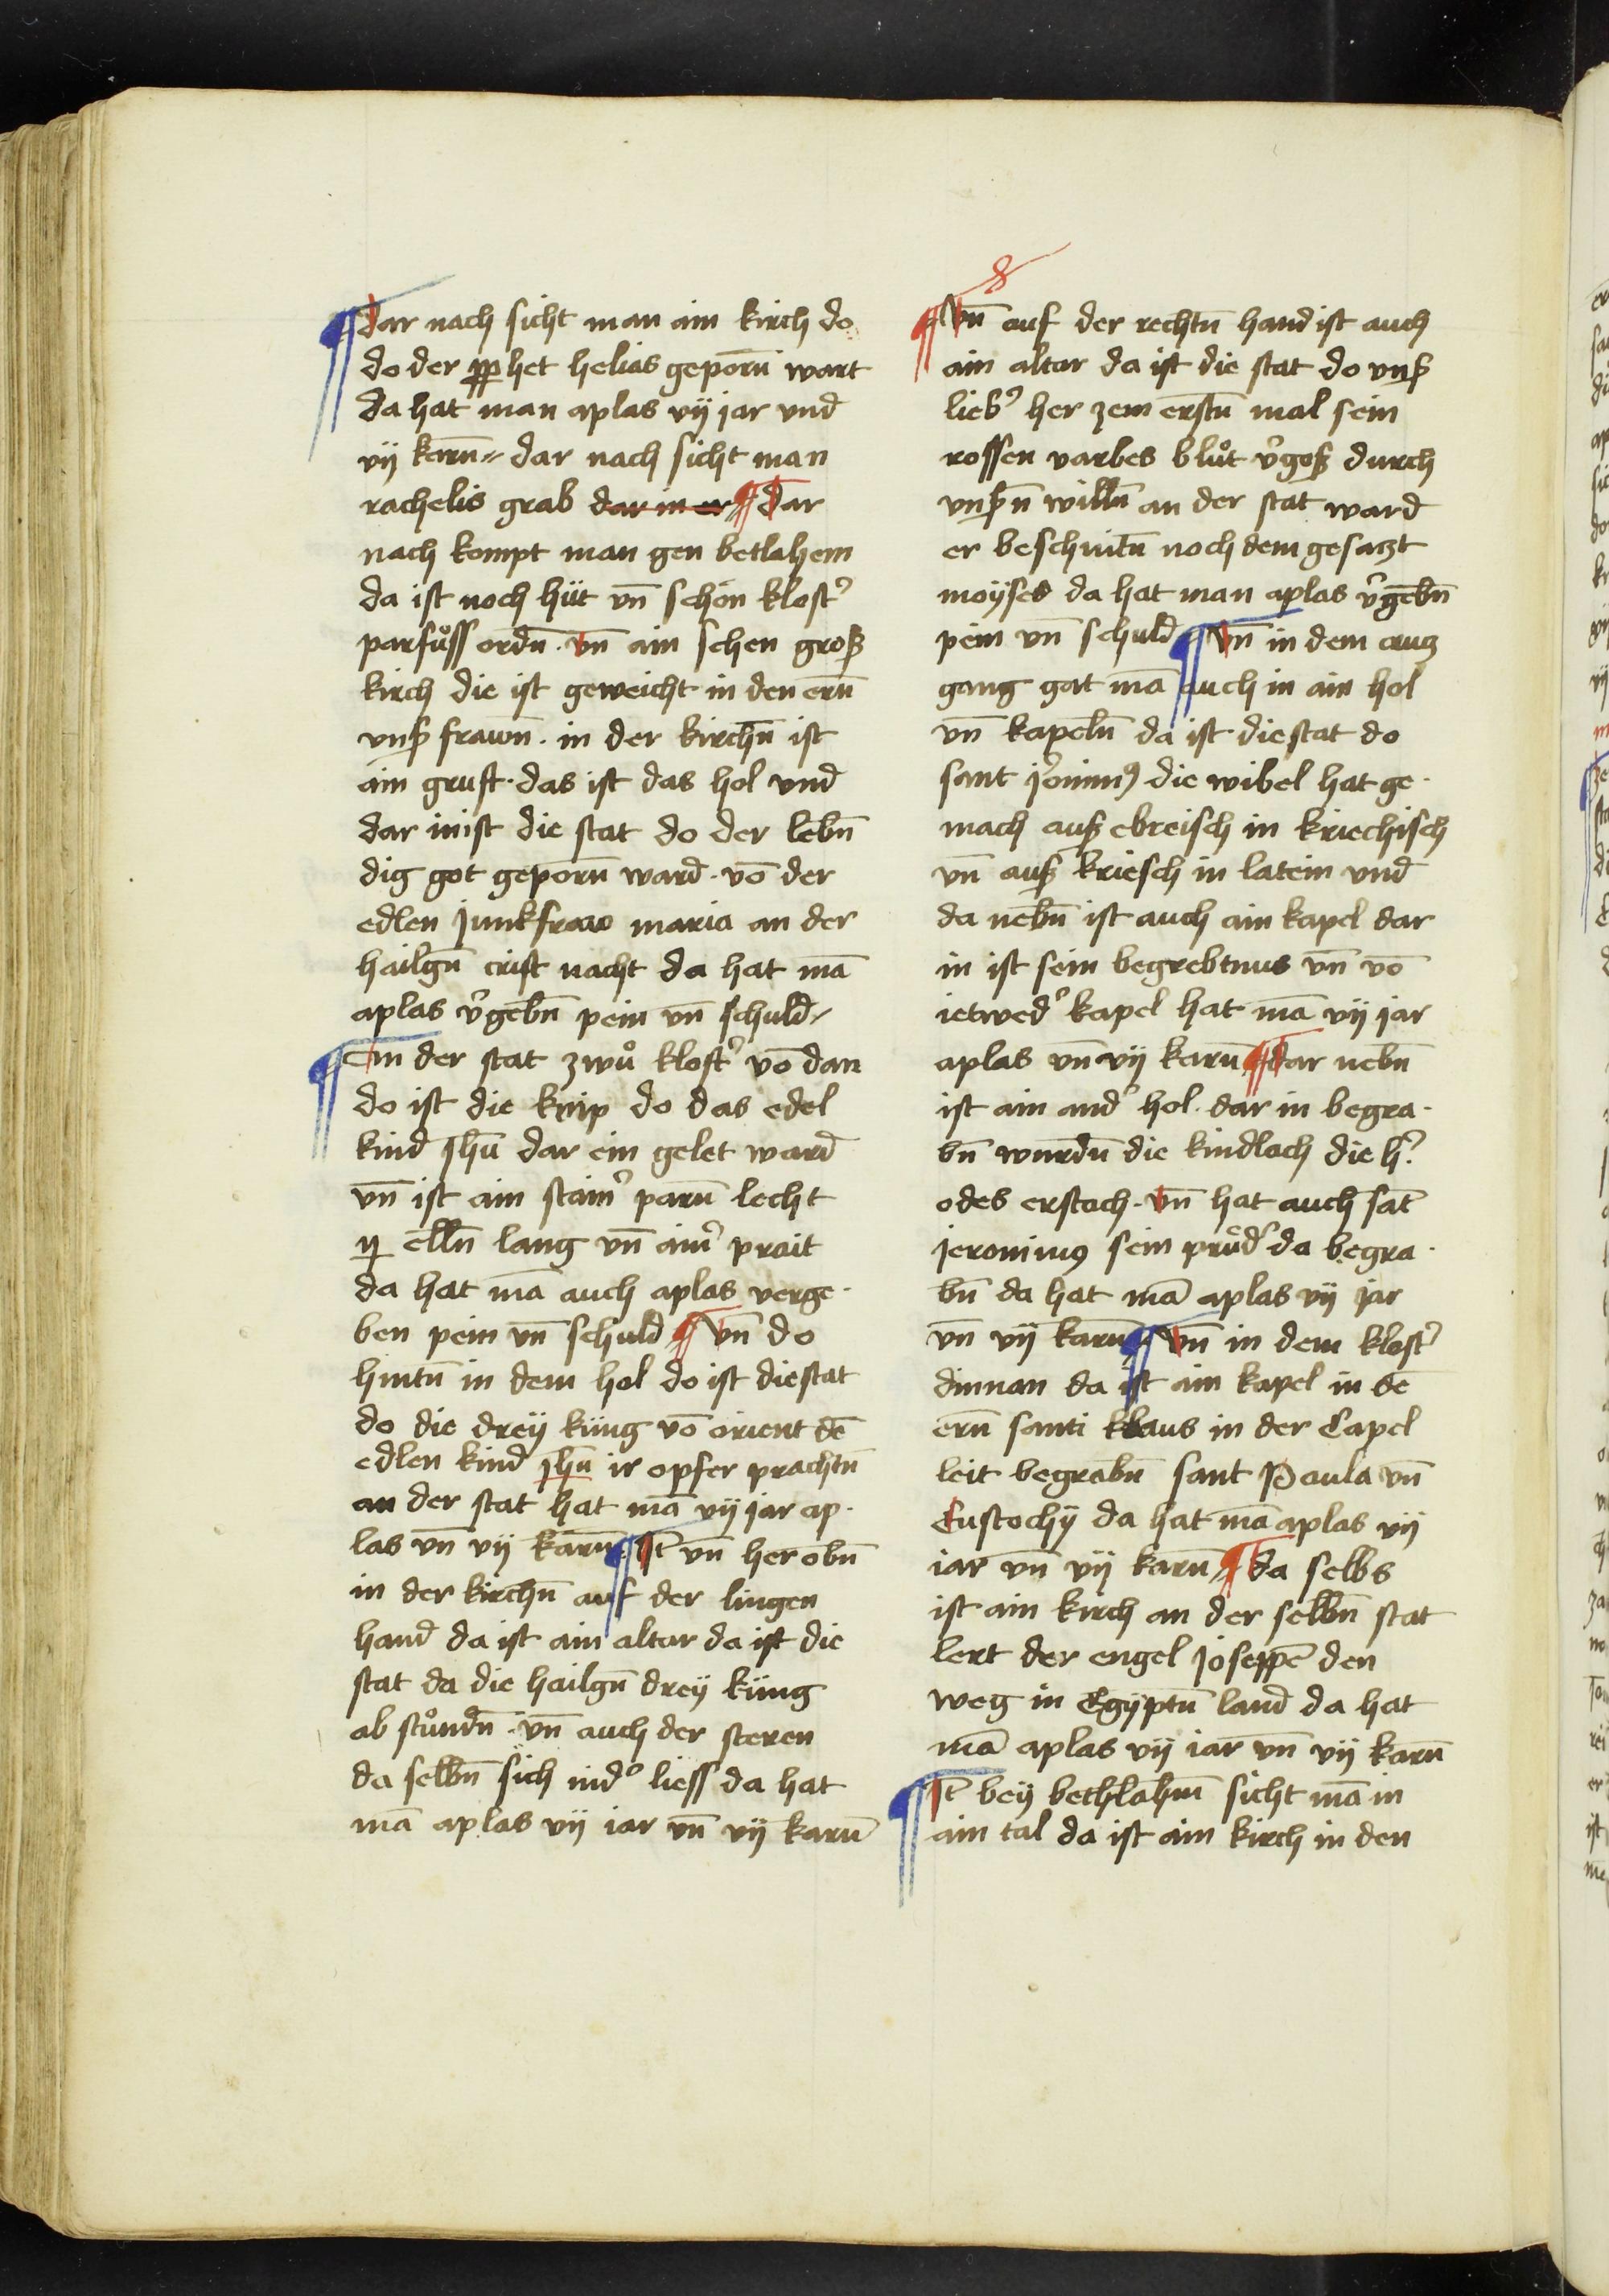 ¶ dar nach sicht man ain kirch do
do der ꝓphet helias geporn̄ wart
da hat man aplas vij jar vnd
vij karn̄ dar nach sicht man
rachelis grab dar in er ¶ dar
nach kompt man gen betlahem
da ist noch hüt vn̄ schön klost᷑
parfůss ordn̄ · vn̄ ain schen groß
kirch die ist geweicht in den ern̄
vnß frawn̄ · in der kirchn̄ ist
ain gruft · das ist das hol vnd
dar inist die stat do der lebn̄
dig got geporn̄ ward · vō der
edlen junkfraw maria an der
hailgn̄ crist nacht da hat mā
aplas v᷑gebn̄ pein vn̄ schuld
¶ In der stat zwů klost᷑ vō dan
do ist die krip do das edel
kind jhū dar ein gelet ward
vn̄ ist ain stain᷑ parn̄ lecht
ij elln̄ lang vn̄ ain᷑ prait
da hat mā auch aplas verge·
ben pein vn̄ schuld ¶ vn̄ do
hintn̄ in dem hol do ist die stat
do die dreÿ küng vō orient dē
edlen kind jhū ir opfer prachtn̄
an der stat hat mā vij jar ap·
las vn̄ vij karn̄ ¶ It̄ vn̄ her obn̄
in der kirchn̄ auf der lingen
hand da ist ain altar da ist die
stat da die hailgn̄ dreÿ küng
ab stůndn̄ · vn̄ auch der steren
da selbn̄ sich nid᷑ liess da hat
mā aplas vij iar vn̄ vij karn̄
¶ Vn̄ auf der rechtn̄ hand ist auch
ain altar da ist die stat do vnß
lieb᷑ her zem erstn̄ mal sein
rossen varbes blůt v᷑goß durch
vnßn̄ willn̄ an der stat ward
er beschnitn̄ noch dem gesatzt
moÿses da hat man aplas v᷑gebn̄
pein vn̄ schuld ¶ Vn̄ in dem crutz
gang gat mā auch in ain hol
vn̄ kapeln̄ da ist die stat do
sant j᷑onimꝰ die wibel hat ge·
mach auß ebreisch in kriechisch
vn̄ auß kriesch in latein vnd
da nebn̄ ist auch ain kapel dar
in ist sein begrebtnus vn̄ vō
ietwed᷑ kapel hat mā vij jar
aplas vn̄ vij karn̄ ¶ dar nebn̄
ist ain and᷑ hol · dar in begra·
bn̄ wurdn̄ die kindlach die h᷑
odes erstach · vn̄ hat auch sāt
jeronimꝰ sein průd᷑ da begra·
bn̄ da hat mā aplas vij jar
vn̄ vij karn̄ ¶ vn̄ in dem klost᷑
dinnan da ist ain kapel in dē
ern̄ santi klaus in der Capel
leit begrabn̄ sant Paula vn̄
Eustochÿ da hat mā aplas vij
iar vn̄ vij karn̄ ¶ da selbs
ist ain kirch an der selbn̄ stat
lert der engel joseppē den
weg in Egÿptn̄ land da hat
mā aplas vij iar vn̄ vij karn̄
¶ It̄ beÿ bethlahm̄ sicht mā in
ain tal da ist ain kirch in den